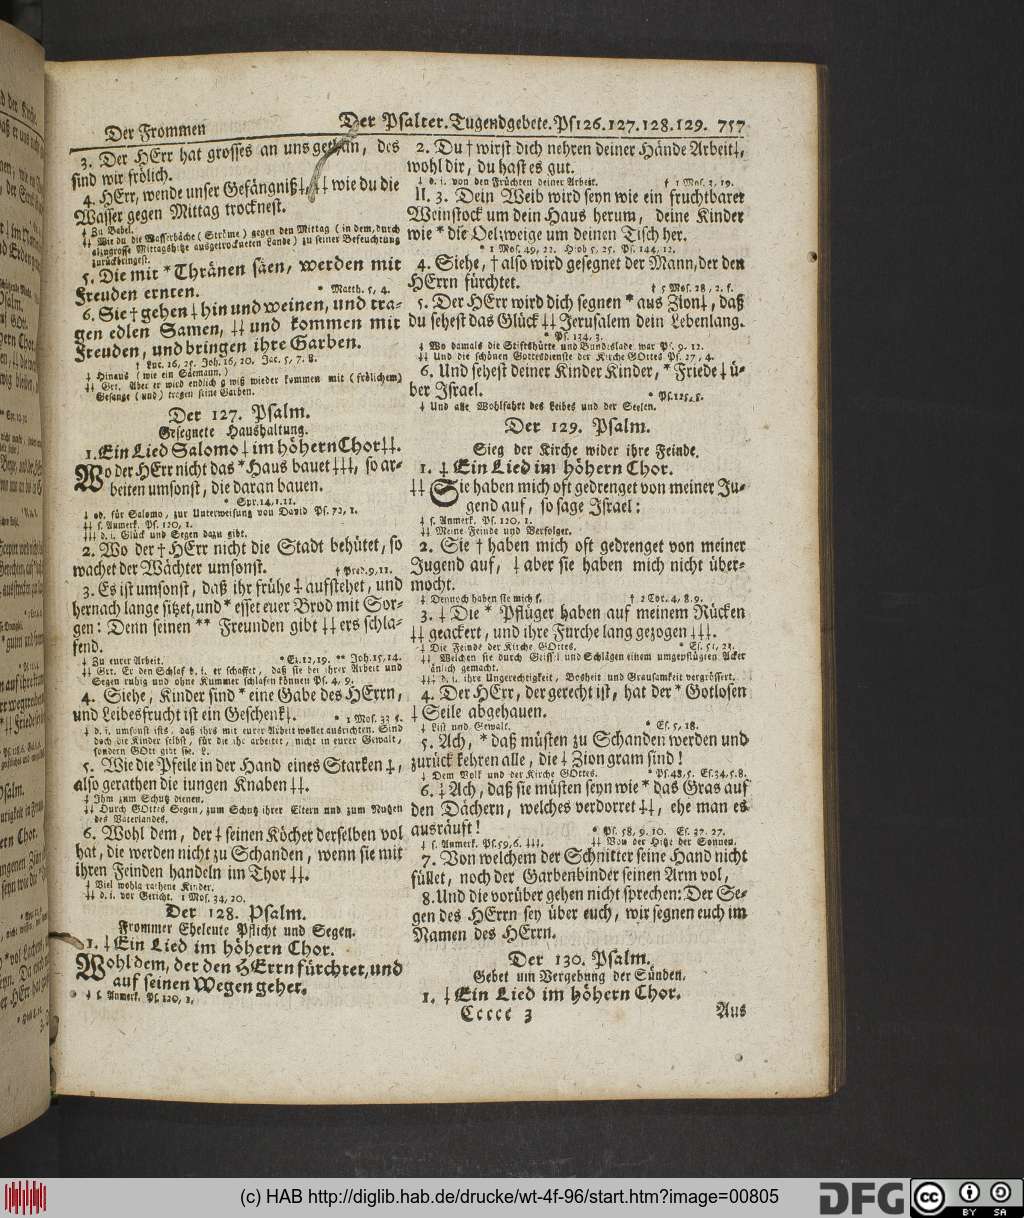 Der Frommen Der Psalter. Tugendgebete. Ps 126. 127. 128. 129. 757
3. Der HErr hat grosses an uns gethan, des
sind wir frölich.
4. HErr, wende unser Gefängniß‡, ‡‡ wie du die
Wasser gegen Mittag trocknest.
‡ Zu Babel.
‡‡ Wie du die Wasserbäche (Ströme) gegen den Mittag (in dem, durch
allzugrosse Mittagshitze ausgetrockneten Lande) zu seiner Befeuchtung
zurückbringest.
5. Die mit * Thränen säen, werden mit
Freuden ernten. * Matth. 5, 4.
6. Sie † gehen ‡ hin und weinen, und tra-
gen edlen Samen, ‡‡ und kommen mit
Freuden, und bringen ihre Garben.
† Luc. 16, 25. Joh. 16, 20. Jac. 5, 7. 8.
‡ Hinaus (wie ein Säemann.)
‡‡ Grt. Aber er wird endlich gwiß wieder kommen mit (frölichem)
Gesange (und) tragen seine Garben.
Der 127. Psalm.
Gesegnete Haushaltung.
1. Ein Lied Salomo ‡ im höhern Chor ‡‡.
Wo der HErr nicht das * Haus bauet ‡‡‡, so ar-
beiten umsonst, die daran bauen.
* Spr. 14, 1. 11.
‡ od. für Salomo, zur Unterweisung von David Ps. 72, 1.
‡‡ s. Anmerk. Ps. 120, 1.
‡‡‡ d. i. Glück und Segen dazu gibt.
2. Wo der † HErr nicht die Stadt behütet, so
wachet der Wächter umsonst. † Pred. 9, 11.
3. Es ist umsonst, daß ihr frühe ‡ aufstehet, und
hernach lange sitzet, und * esset euer Brod mit Sor-
gen: Denn seinen ** Freunden gibt ‡‡ ers schla-
fend.
‡ Zu eurer Arbeit. * Ez. 12, 19. ** Joh. 15, 14.
‡‡ Grt. Er den Schlaf d. i. er schaffet, daß sie bei ihrer Arbeit und
Segen ruhig und ohne Kummer schlafen können Ps. 4, 9.
4. Siehe, Kinder sind * eine Gabe des HErrn,
und Leibesfrucht ist ein Geschenk ‡. * 1 Mos. 33 5.
‡ d. i. umsonst ists, daß ihrs mit eurer Arbeit wollet ausrichten. Sind
doch die Kinder selbst, für die ihr arbeitet, nicht in eurer Gewalt,
sondern GOtt gibt sie. L.
5. Wie die Pfeile in der Hand eines Starken ‡,
also gerathen die iungen Knaben ‡‡.
‡ Ihm zum Schutz dienen.
‡‡ Durch GOttes Segen, zum Schutz ihrer Eltern und zum Nutzen
des Vaterlandes.
6. Wohl dem, der ‡ seinen Köcher derselben vol
hat, die werden nicht zu Schanden, wenn sie mit
ihren Feinden handeln im Thor ‡‡.
‡ Viel wohlgerathene Kinder.
‡‡ d. i. vor Gericht. 1 Mos. 34, 20.
Der 128. Psalm.
Frommer Eheleute Pflicht und Segen.
1. ‡ Ein Lied im höhern Chor.
Wohl dem, der den HErrn fürchtet, und
auf seinen Wegen gehet.
‡ s. Anmerk. Ps. 120, 1.
2. Du † wirst dich nehren deiner Hände Arbeit ‡,
wohl dir, du hast es gut.
‡ d. i. von den Früchten deiner Arbeit. † 1 Mos. 3, 19.
II. 3. Dein Weib wird seyn wie ein fruchtbarer
Weinstock um dein Haus herum, deine Kinder
wie * die Oelzweige um deinen Tisch her.
* 1 Mos. 49, 22. Hiob 5, 25. Ps. 144, 12.
4. Siehe, † also wird gesegnet der Mann, der den
HErrn fürchtet. † 5 Mos. 28, 2. f.
5. Der HErr wird dich segnen * aus Zion ‡, daß
du sehest das Glück ‡‡ Jerusalem dein Lebenlang.
* Ps. 134, 3.
‡ Wo damals die Stiftshütte und Bundeslade war Ps. 9. 12.
‡‡ Und die schönen Gottesdienste der Kirche GOttes Ps. 27, 4.
6. Und sehest deiner Kinder Kinder, * Friede ‡ ü-
ber Israel. * Ps. 125, 5.
‡ Und alle Wohlfahrt des Leibes und der Seelen.
Der 129. Psalm.
Sieg der Kirche wider ihre Feinde.
1. ‡ Ein Lied im höhern Chor.
‡‡ Sie haben mich oft gedrenget von meiner Ju-
gend auf, so sage Israel:
‡ s. Anmerk. Ps. 120, 1.
‡‡ Meine Feinde und Verfolger.
2. Sie † haben mich oft gedrenget von meiner
Jugend auf, ‡ aber sie haben mich nicht über-
mocht.
‡ Dennoch haben sie mich f. † 2 Cor. 4, 8. 9.
3. ‡ Die * Pflüger haben auf meinem Rücken
‡‡ geackert, und ihre Furche lang gezogen ‡‡‡.
‡ Die Feinde der Kirche GOttes. * Es. 51, 23.
‡‡ Welchen sie durch Geissel und Schlägen einem umgepflügten Acker
änlich gemacht.
‡‡‡ d. i. ihre Ungerechtigkeit, Bosheit und Grausamkeit vergrössert.
4. Der HErr, der gerecht ist, hat der * Gotlosen
‡ Seile abgehauen.
‡ List und Gewalt. * Es. 5, 18.
5. Ach, * daß müsten zu Schanden werden und
zurück kehren alle, die ‡ Zion gram sind!
‡ Dem Volk und der Kirche GOttes. * Ps. 48, 5. Es. 34, 5. 8.
6. ‡ Ach, daß sie müsten seyn wie * das Gras auf
den Dächern, welches verdorret ‡‡, ehe man es
ausräuft! * Ps. 58, 9. 10. Es. 37. 27.
‡ s. Anmerk. Ps. 59, 6. ‡‡‡. ‡‡ Von der Hitze der Sonnen.
7. Von welchem der Schnitter seine Hand nicht
füllet, noch der Garbenbinder seinen Arm vol,
8. Und die vorüber gehen nicht sprechen: Der Se-
gen des HErrn sey über euch, wir segnen euch im
Namen des HErrn.
Der 130. Psalm.
Gebet um Vergebung der Sünden.
1. ‡ Ein Lied im höhern Chor.
Ccccc 3 Aus
(c) HAB http://diglib.hab.de/drucke/wt-4f-96/start.htm?image=00805
DFG
cc
BY SA